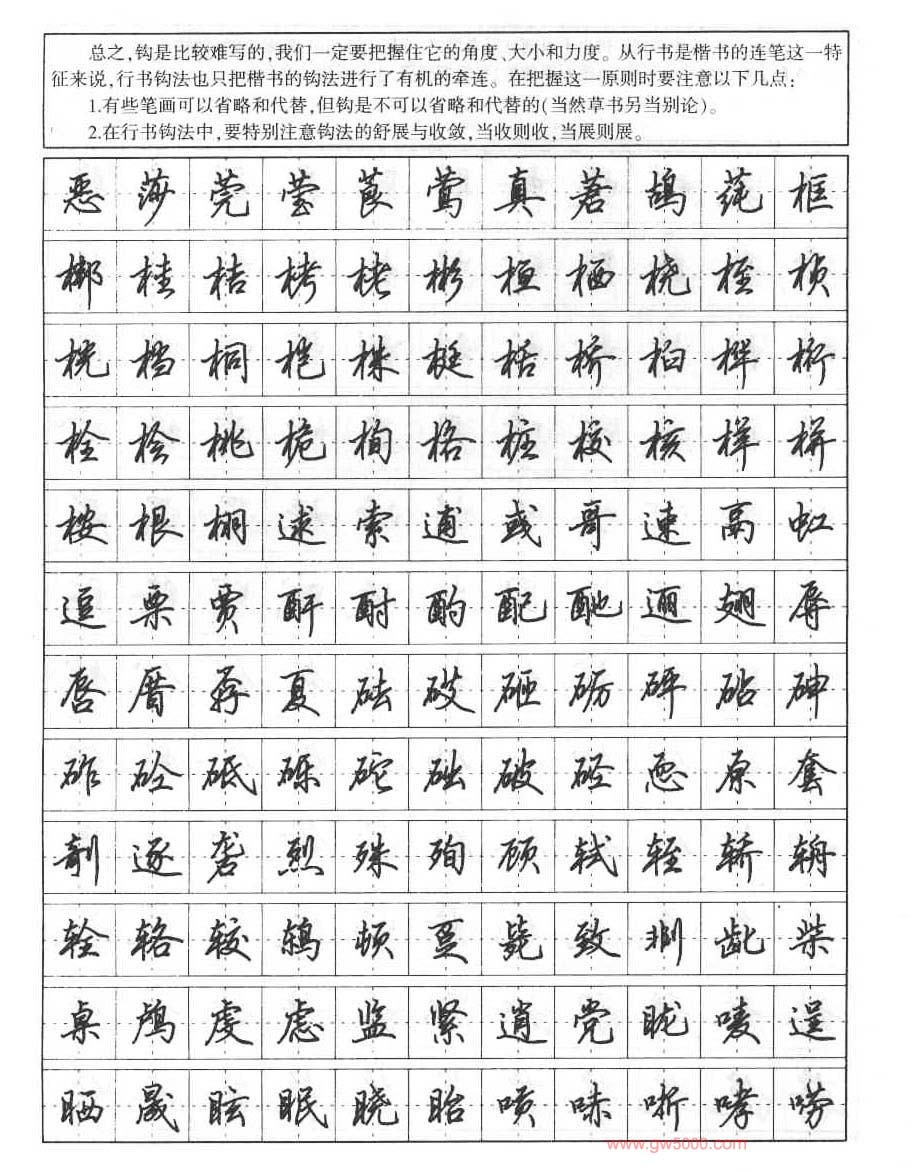 总之,钩是比较难写的,我们一定要把握住它的角度、大小和力度。从行书是楷书的连笔这一特
征来说,行书钩法也只把楷书的钩法进行了有机的牵连。在把握这一原则时要注意以下几点:
1.有些笔画可以省略和代替,但钩是不可以省略和代替的(当然草书另当别论)。
2.在行书钩法中,要特别注意钩法的舒展与收敛,当收则收,当展则展。
恶莎莞莹莨莺真莙鸪莼框
梆桂桔栲栳彬桓栖桡桎桢
桄档桐桤株梃栝桥桕桦桁
栓桧桃桅栒格桩校核样栟
桉根栩逑索逋彧哥速鬲虹
逗栗贾酐酎酌配酏逦翅辱
唇厝孬夏砝砹砸砺砰砧砷
砟砼砥砾砣础破硁恧原套
剞逐砻烈殊殉顾轼轾轿辀
辁辂较鸫顿趸毙致剕龀柴
桌鸬虔虑监紧逍党眬唛逞
晒晟眩眠晓眙唝哧哳哮唠
www.gw5000.com